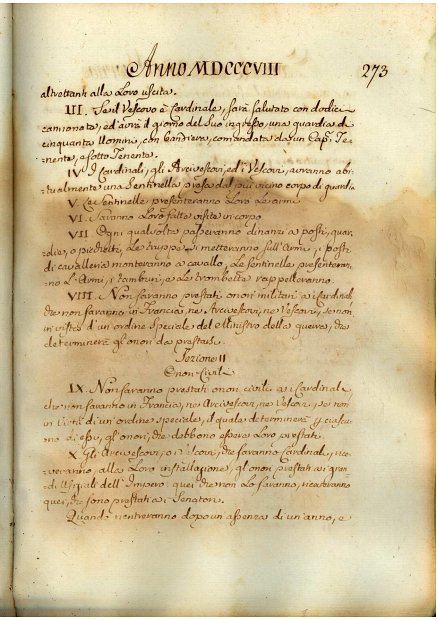 Anno MDCCCVIII
273
altrettanti alla Loro uscita.
III. Se il Vescovo è Cardinale, sarà salutato con dodici
cannonate, ed avrà il giorno del suo ingresso, una guardia di
cinquanta Uomini, con bandiera, comandata da un Capº, Te-
nente, e sotto Tenente.
IV. I Cardinali, gli Arcivescovi, ed i Vescovi, avranno abi-
tualmente una Sentinella presa dal più vicino corpo di guardia
V. Le Sentinelle presenteranno Loro le armi
VI. Saranno Loro fatte visite in corpo
VII. Ogni qualvolta passeranno dinanzi a posti, guar-
die, o picchetti, Le truppe si metteranno sull'Armi, i posti
di cavalleria monteranno a cavallo, Le sentinelle presenteran-
no L'Armi, i tamburi, e Le trombette rappelleranno.
VIII. Non saranno prestati onori militari ai Cardinali
che non saranno in Francia, nè Arcivescovi, nè Vescovi, se non
in vista d'un ordine speciale del Ministro della guerra, che
determinerà gli onori da prestarsi.
Sezione II
Onori Civili
IX. Non saranno prestati onori civili ai Cardinali
che non saranno in Francia, nè Arcivescovi, nè Vescovi, se non
in virtù di un'ordine speciale, il quale determinerà p ciascu-
no di essi, gli onori, che debbono essere Loro prestati.
X. Gli Arcivescovi, o Vescovi, che saranno Cardinali, rice-
veranno, alla Loro installazione, gli onori prestati ai gran-
di Ufiziali dell'Impero: quei che non Lo saranno, riceveranno
quei, che sono prestati ai Senatori.
Quando rientreranno dopo un'assenza di un'anno, e